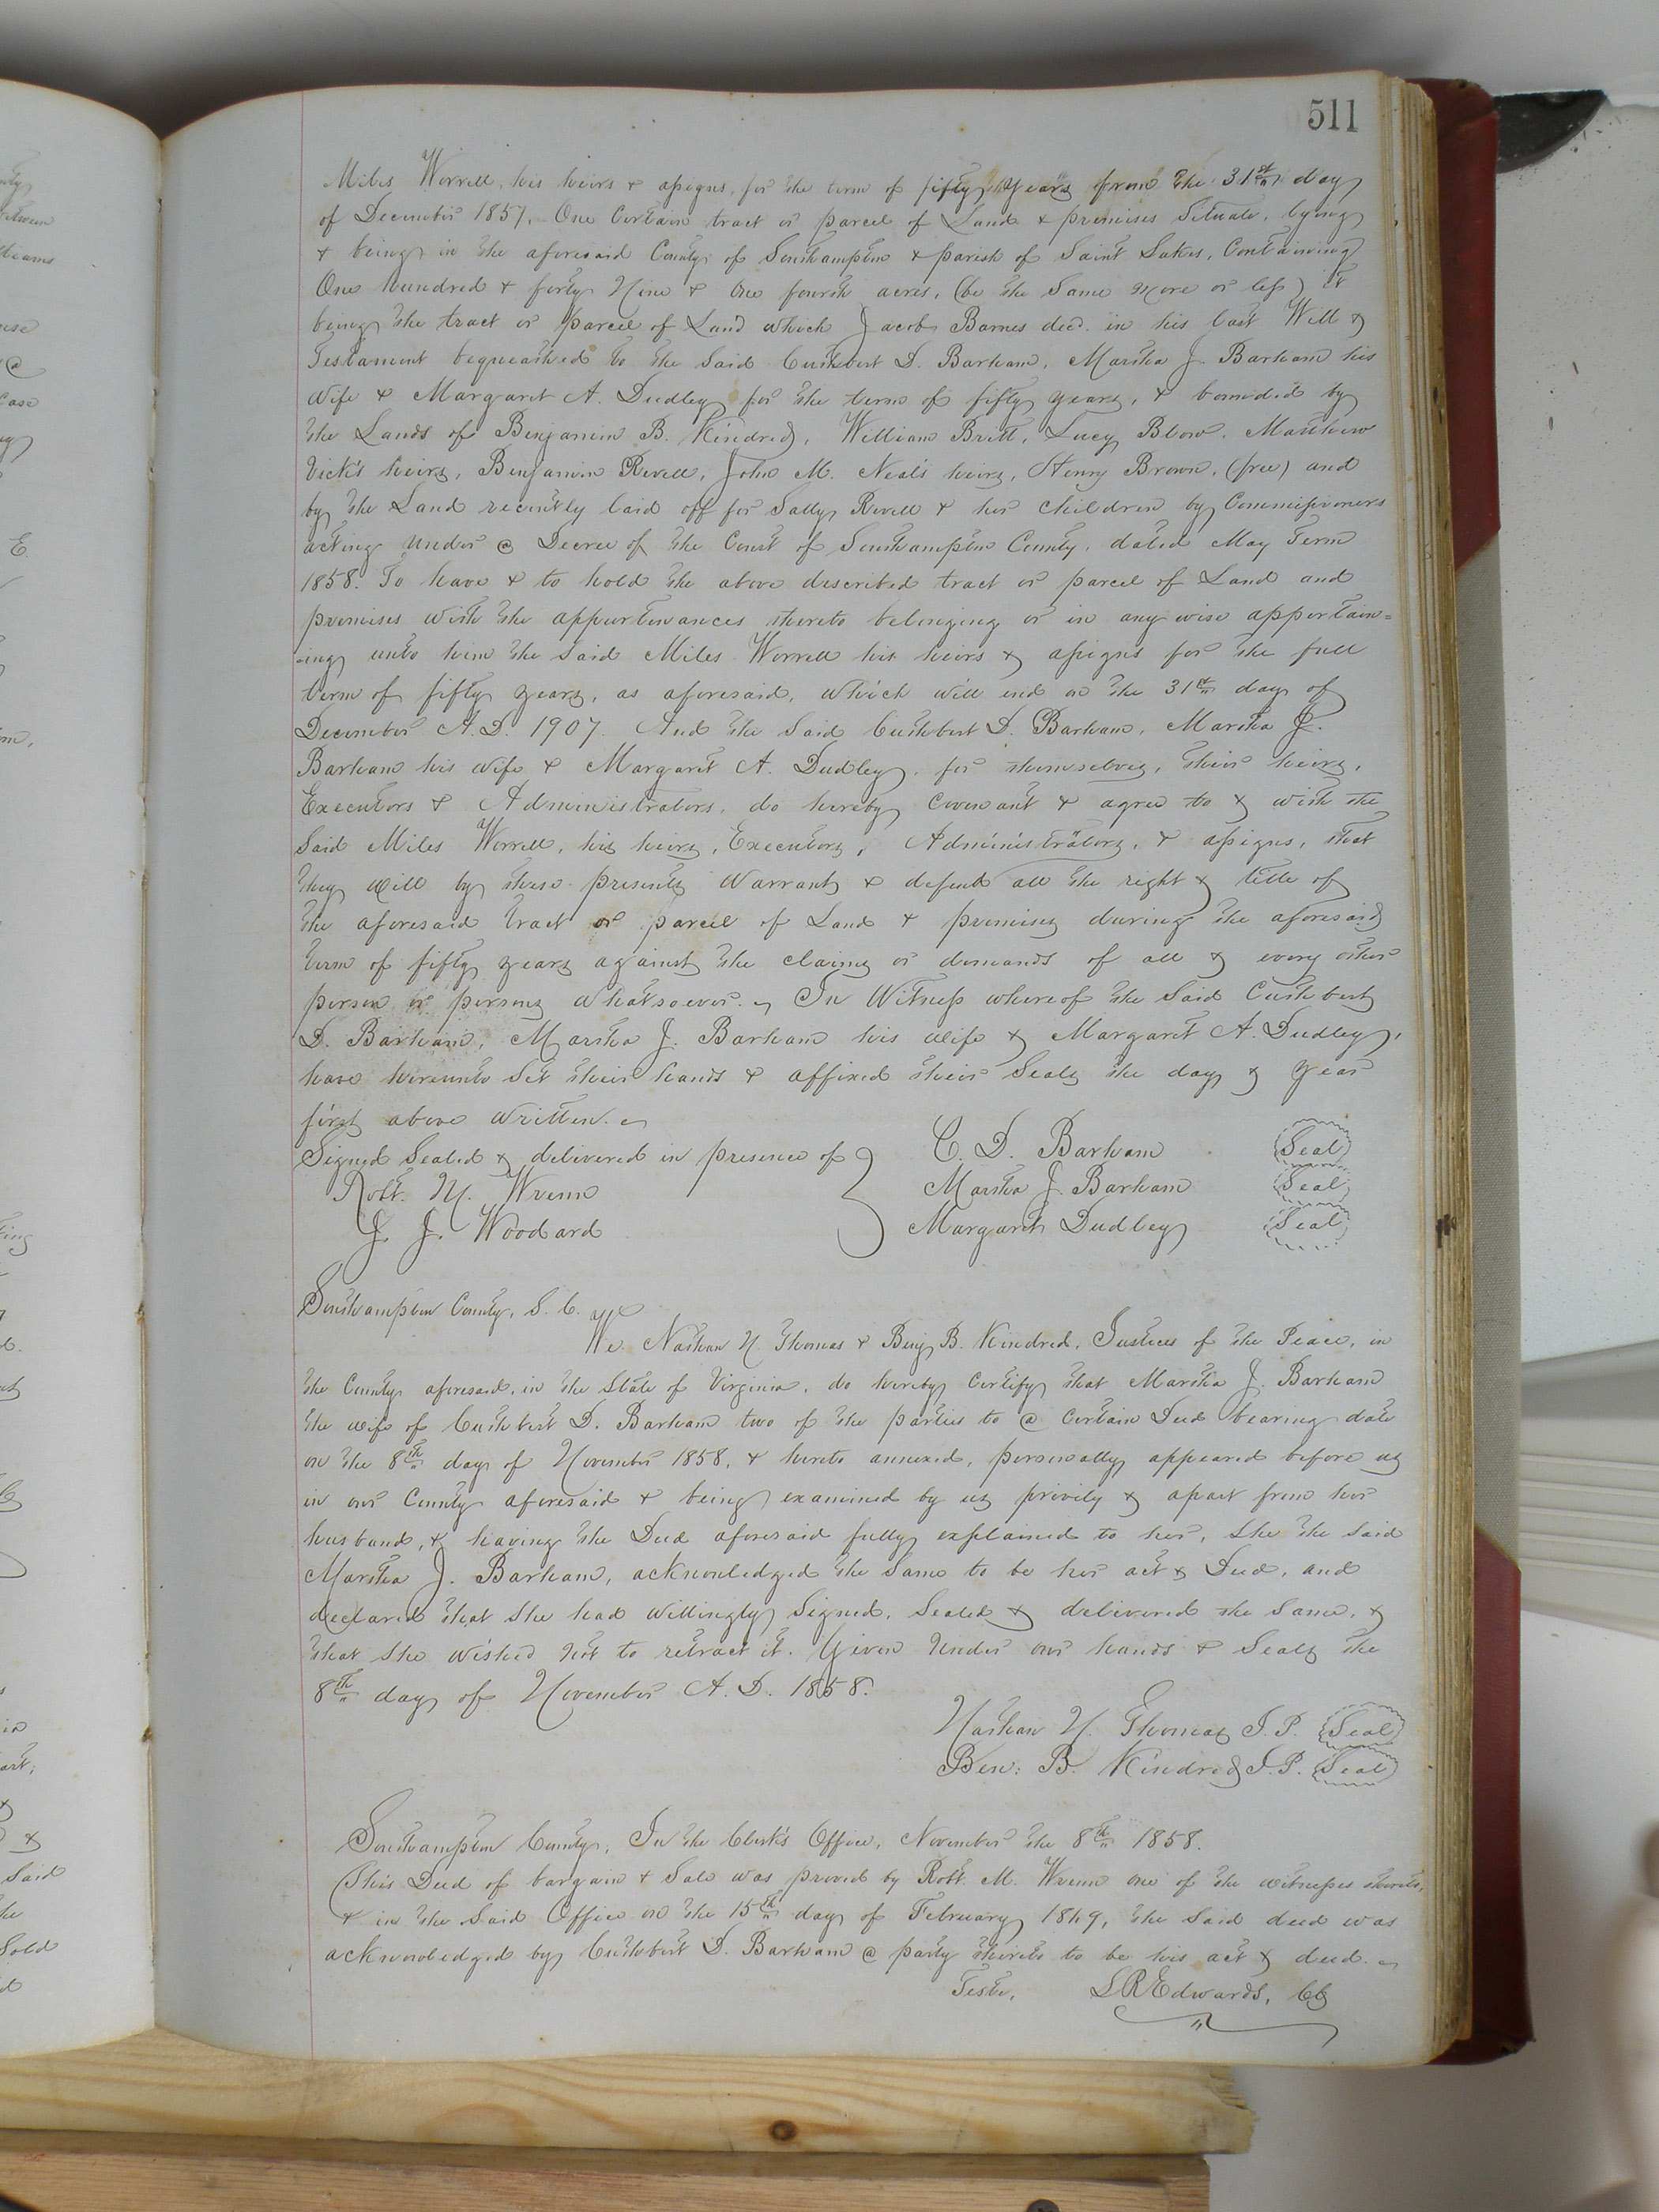 511
Miles Worrell, his heirs & assigns, for the term of fifty years from the 31st day
of December 1857, One Certain tract or parcel of Land & premises Situate, lying
& being in the aforesaid County of Southampton & parish of Saint Lukes, Containing
One hundred & forty Nine & One fourth acres, (be the Same more or less) it
being the tract or parcel of Land which Jacob Barnes decd. in his last Will &
Testament bequeathed to the Said Cuthbert D. Barham, Martha J. Barham his
Wife & Margaret A. Dudley for the term of fifty years, & bounded by
the Lands of Benjamin B. Kindred, William Britt, Lucy Blow, Matthew
Vick's heirs, Benjamin Revell, John M. Neal's heirs, Henry Brown, (free) and
by the Land recently laid off for Sally Revell & her children by Commissioners
acting under @ Decree of the Court of Southampton County, dated May Term
1858. To have & to hold the above described tract or parcel of Land and
premises with the appurtenances thereto belonging or in any wise appertain=
-ing unto him the Said Miles Worrell his heirs & assigns for the full
term of fifty years, as aforesaid, which will end on the 31st day of
December A.D. 1907. And the Said Cuthbert D. Barham, Martha J.
Barham his wife & Margaret A. Dudley, for themselves, their heirs,
Executors & Administrators, do hereby covenant & agree to & with the
Said Miles Worrell, his heirs, Executors, Administrators, & assigns, that
they will by these presents Warrant & defend all the right & title of
the aforesaid tract or parcel of Land & premises during the aforesaid
term of fifty years against the claims or demands of all & every other
person or persons whatsoever. In Witness whereof the Said Cuthbert
D. Barham, Martha J. Barham his wife & Margaret A. Dudley,
have hereunto Set their hands & affixed their Seals the day & year
first above written.
Signed Sealed & delivered in presence of } C. D. Barham Seal
Robt. M. Wrenn Martha J. Barham Seal
J. J. Woodard Margaret Dudley Seal
Southampton County, S. C.
We Nathan N. Thomas & Benj B. Kindred, Justices of the Peace, in
the County aforesaid, in the State of Virginia, do hereby Certify that Martha J. Barham
the wife of Cuthbert D. Barham two of the parties to @ Certain Deed bearing date
on the 8th day of November 1858, & hereto annexed, personally appeared before us
in our County aforesaid & being examined by us privily & apart from her
husband, & having the Deed aforesaid fully explained to her, She the Said
Martha J. Barham, acknowledged the Same to be her act & Deed, and
declared that She had willingly Signed, Sealed & delivered the Same, &
that She wished not to retract it. Given Under our hands & Seals the
8th day of November A.D. 1858.
Nathan N. Thomas J.P. Seal
Ben: B. Kindred J.P. Seal
Southampton County, In the Clerk's Office, November the 8th 1858.
This Deed of bargain & Sale was proved by Robt. M. Wrenn one of the witnesses thereto,
& in the Said Office on the 15th day of February 1849, the Said deed was
acknowledged by Cuthbert D. Barham @ party thereto to be his act & deed.
Teste, L R Edwards, CC